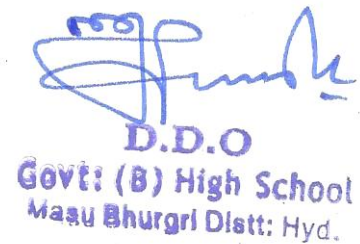 D.D.O
Govt: (B) High School
Masu Bhurgri Distt: Hyd.